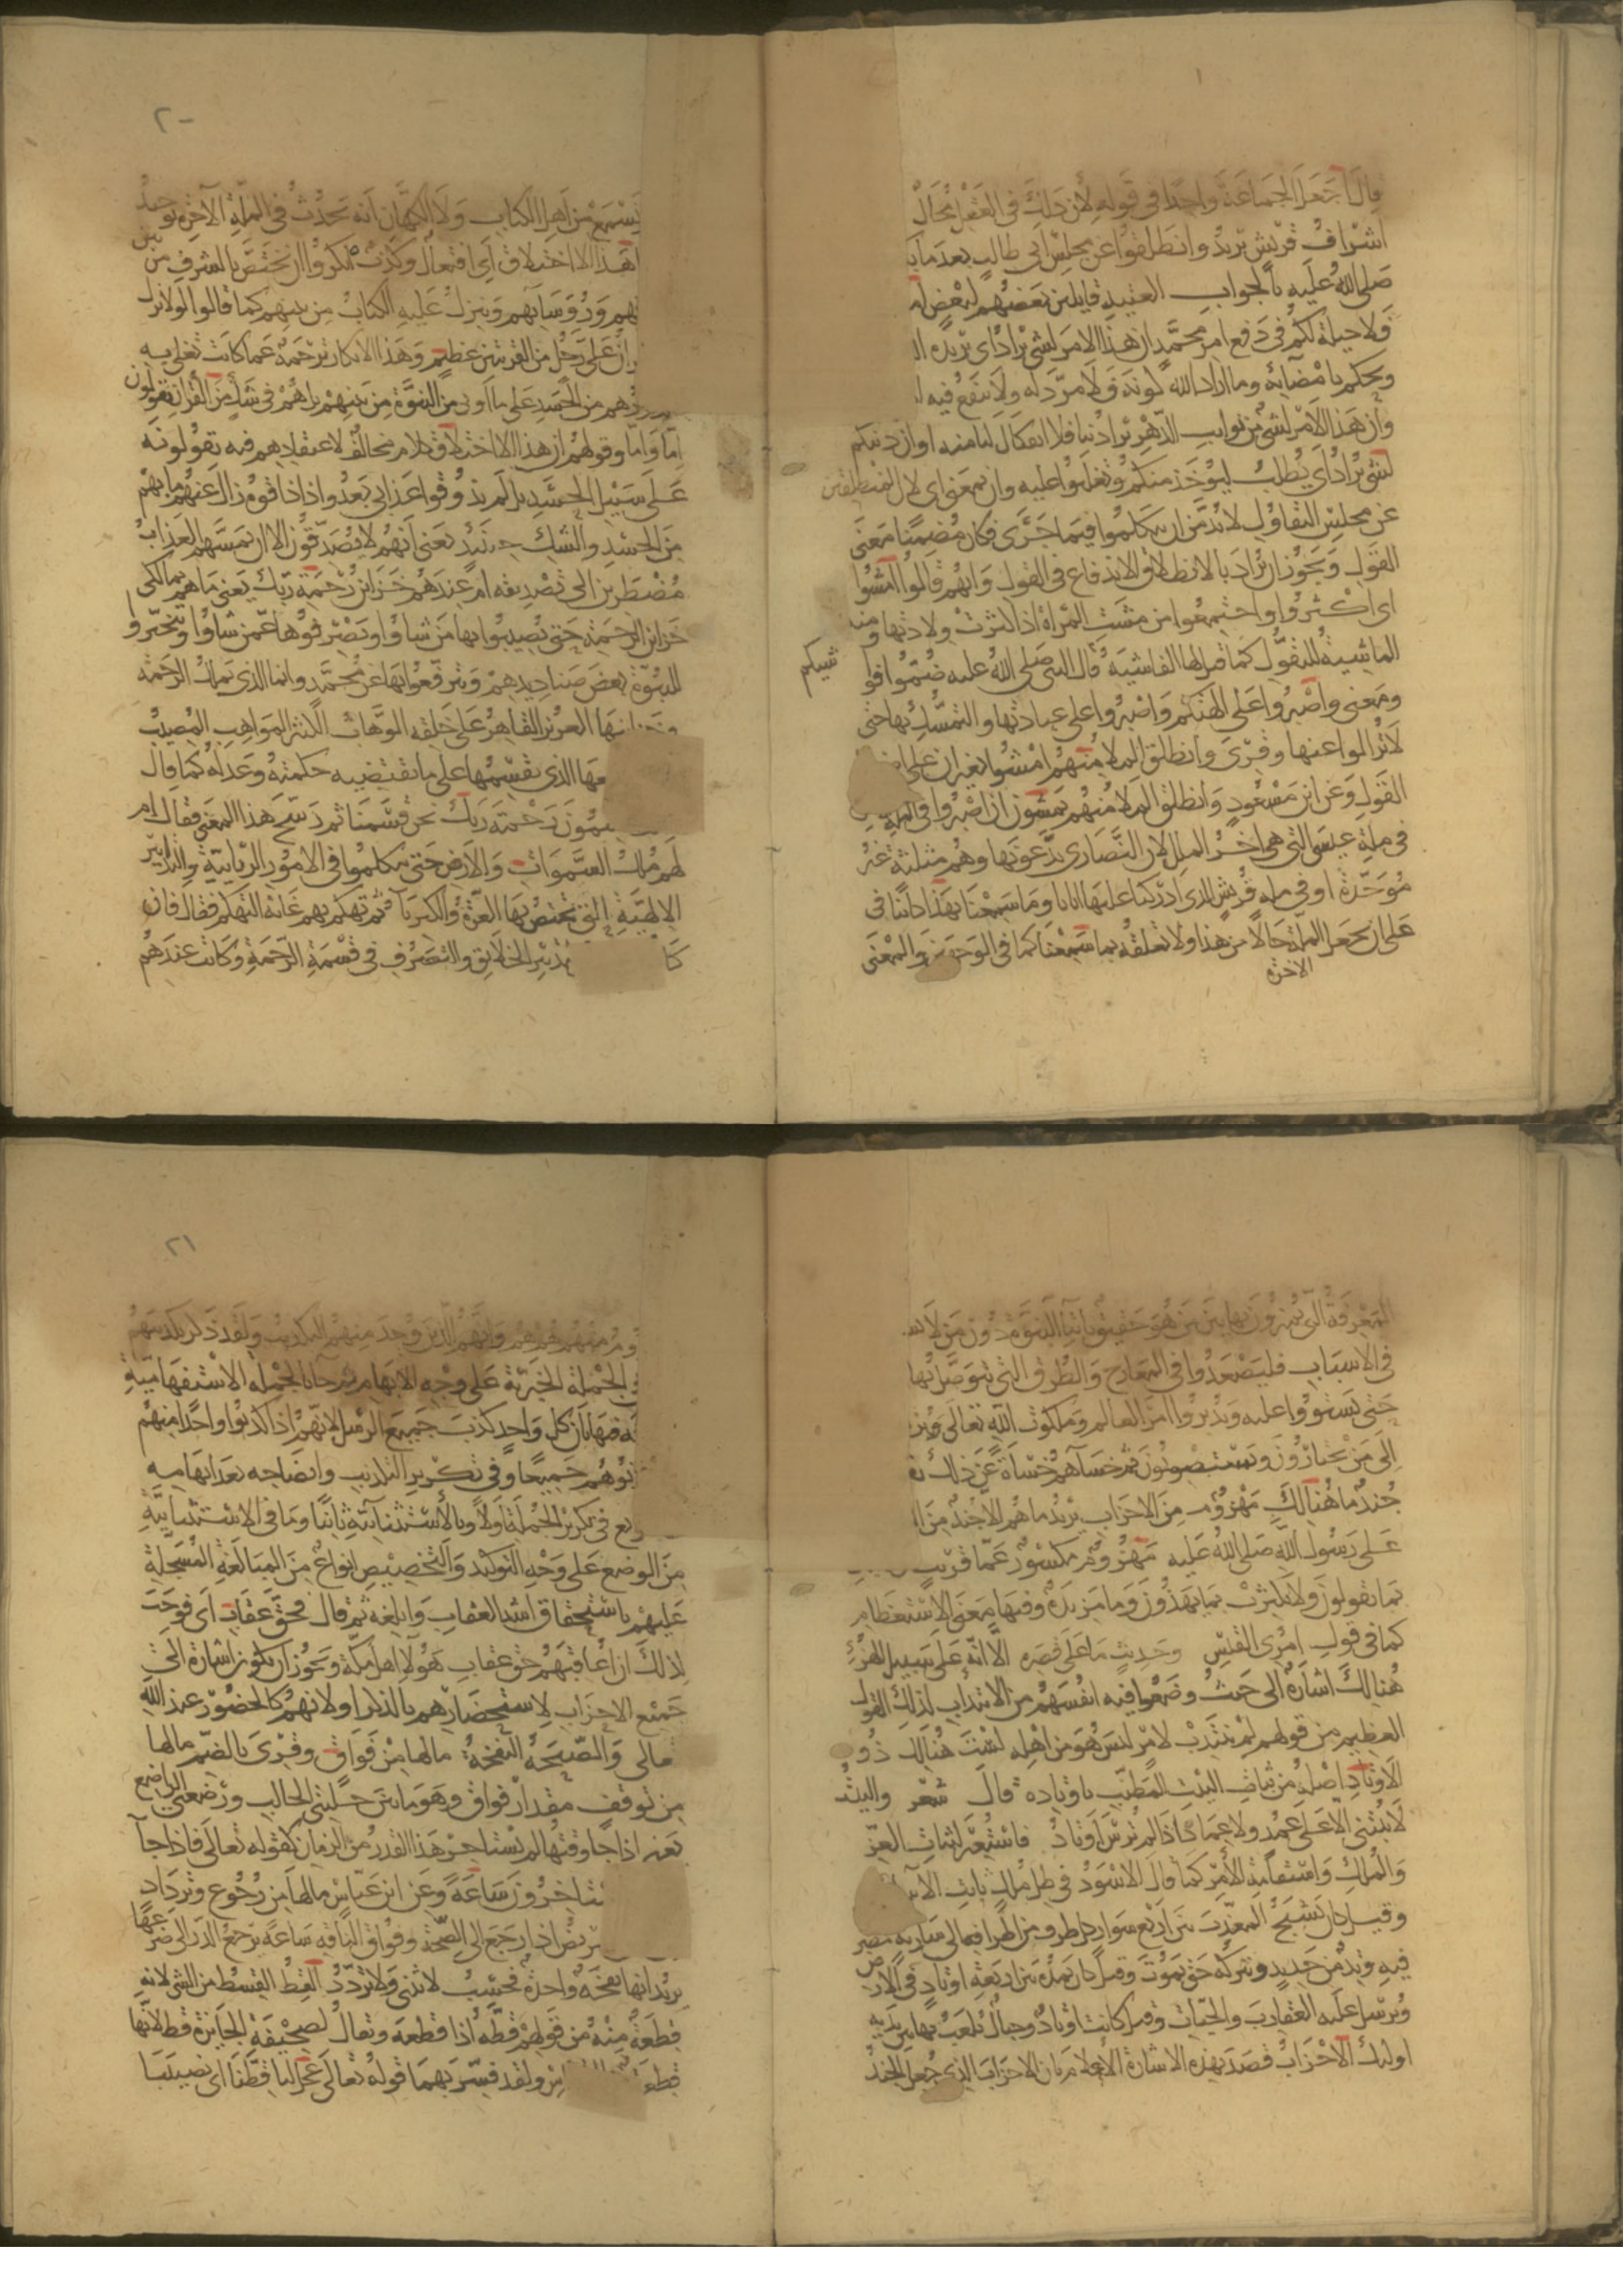 قال أجعل الجماعة واحدا في قوله لأن ذلك في العقل محال
أشراف قريش يريد وانطلقوا عن مجلس أبي طالب بعد ما
صلى الله عليه بالجواب العتيد قايلين بعضهم لبعض
فلا حيلة لكم في دفع امر محمد ان هذا الامر لشي يراد اي يريده
ويحكم بامضايه وما اراد الله كونه فلا مرد له ولا ينفع فيه
وان هذا الامر لشي من نوايب الدهر يراد بنا فلا انفكاك لنا منه او ان دينكم
لشي يراد اي يطلب ليؤخذ منكم وتغلبوا عليه وان بمعنى اي لان المنطلقين
عن مجلس التقاول لا بد من ان يتكلموا فيما جرى فكان مضمنا معنى
القول ويجوز ان يراد بالانطلاق الاندفاع في القول وانهم قالوا امشوا
اي اكثروا واجتمعوا من مشت المراة اذا كثرت ولادتها ومنه
الماشية للتفول كما قيل لها الفاشية قال النبي صلى الله عليه ضموا فوا
شيكم
ومعنى واصبروا على الهتكم واصبروا على عبادتها والتمسك بها حتى
لا تزالوا عنها وقرى وانطلق الملا منهم امشوا بغير ان على
القول وعن ابن مسعود وانطلق الملا منهم يمشون ان اصبروا في الملة
في ملة عيسى التي هي اخر الملل لان النصارى يدعونها وهم مثلثة غير
موحدة او في ملة قريش الذي ادركنا عليها ابانا وما سمعنا بهذا كاينا في
على ان يجعل الملة حالا من هذا ولا تعلقه بما سمعنا كما في الوجهين والمعنى
الاخرة
- ٢٠
يسمع من اهل الكتاب ولا الكهان انه يحدث في الملة الاخرة توحيد
هذا الا اختلاق اي افتعال وكذب انكروا ان يختص بالشرف من بين
هم ورؤسايهم وينزل عليه الكتاب من بينهم كما قالوا لولا نزل
على رجل من القريتين عظيم وهذا الانكار ترجمة عما كانت تغلي به
هم من الحسد على ما اوتي من النبوة من بينهم بل هم في شك من القران يقولون
اما واما وقولهم ان هذا الا اختلاق كلام مخالف لاعتقادهم فيه يقولونه
على سبيل الحسد بل لم يذوقوا عذابي بعد واذا ذاقوه زال عنهم ما بهم
من الحسد والشك حينئذ يعني انهم لا يصدقون الا ان يمسهم العذاب
مضطرين الى تصديقه ام عندهم خزاين رحمة ربك يعني ما هم بمالكي
خزاين الرحمة حتى يصيبوا بها من شاؤا ويصرفوها عمن شاؤا ويتخيروا
للنبوة بعض صناديدهم ويترفعوا بها عن محمد وانما الذي يملك الرحمة
وخزاينها العزيز القاهر على خلقه الوهاب الكثير المواهب المصيب
عها الذي يقسمها على ما تقتضيه حكمته وعدله كما قال
يقسمون رحمة ربك نحن قسمنا ثم رشح هذا المعنى فقال ام
لهم ملك السموات والارض حتى يتكلموا في الامور الربانية والتدابير
الالهية التي تختص بها العزة والكبريا ثم تهكم بهم غاية التهكم فقال فان
كا تدبير الخلايق والتصرف في قسمة الرحمة وكانت عندهم
المعرفة التي يميزون بها بين من هو حقيق بايتاء النبوة دون من لا
في الاسباب فليصعدوا في المعارج والطرق التي يتوصل بها
حتى يستووا عليه ويدبروا امر العالم وملكوت الله تعالى
الى من يختارون ويستصوبون ثم خساهم خساة عن ذلك
جند ما هنالك مهزوم من الاحزاب يريد ما هم الا جند من
على رسول الله صلى الله عليه مهزوم مكسور عما قريب
بما يقولون ولا تكترث بما يهذون وما مزيدة وفيها معنى الاستعظام
كما في قول امرى القيس وحديث ما على قصره الا انه على سبيل الهزء
هنالك اشارة الى حيث وضعوا فيه انفسهم من الانتداب لذلك القول
العظيم من قولهم لمن ينتدب لامر ليس هو من اهله لست هنالك ذو
الاوتاد اصله من ثبات البيت المطنب باوتاده قال شعر والبيت
لا يبتنى الا على عمد ولا عماد اذا لم ترس اوتاد فاستعير لثبات العز
والملك واستقامة الامر كما قال الاسود في ظل ملك ثابت
وقيل كان يشبح المعذب بين اربع سوار كل طرف من اطرافه الى سارية مضر
فيه وتد من حديد ويتركه حتى يموت وقيل كان يمده بين اربعة اوتاد في الارض
ويرسل عليه العقارب والحيات وقيل كانت اوتاد وحبال يلعب بها بين يديه
اولئك الاحزاب قصد بهذه الاشارة الاعلام بان الاحزاب الذي جعل الجند
٢١
منهم هم هم وانهم الذين وجد منهم التكذيب ولقد ذكر تكذيبهم
الجملة الخبرية على وجه الابهام ثم جا بالجملة الاستفهامية
فيها بان كل واحد كذب جميع الرسل لانهم اذا كذبوا واحدا منهم
بوهم جميعا وفي تكرير التكذيب وايضاحه بعد ابهامه
يع في تكرير الجملة اولا وبالاستثنائية ثانيا وما في الاستثنائية
من الوضع على وجه التوكيد والتخصيص انواع من المبالغة المسجلة
عليهم باستحقاق اشد العقاب وابلغه ثم قال فحق عقاب اي فوجب
لذلك ان اعاقبهم حق عقاب هؤلا اهل مكة ويجوز ان يكون اشارة الى
جميع الاحزاب لاستحضارهم بالذكر او لانهم كالحضور عند الله
تعالى والصيحة النفخة ما لها من فواق وقرى بالضم ما لها
من توقف مقدار فواق وهو ما بين حلبتي الحالب ورضعتي الراضع
يعني اذا جا وقتها لم تستاخر هذا القدر من الزمان كقوله تعالى فاذا جا
يستاخرون ساعة وعن ابن عباس ما لها من رجوع وترداد
يض اذا رجع الى الصحة وفواق الناقة ساعة يرجع الدر الى ضرعها
يريد انها نفخة واحدة فحسب لا تثنى ولا تردد القط القسط من الشي لانه
قطعة منه من قولهم قطه اذا قطعه ويقال لصحيفة الجايزة قط لانها
قطعة ولقد فسر بهما قوله تعالى عجل لنا قطنا اي نصيبنا